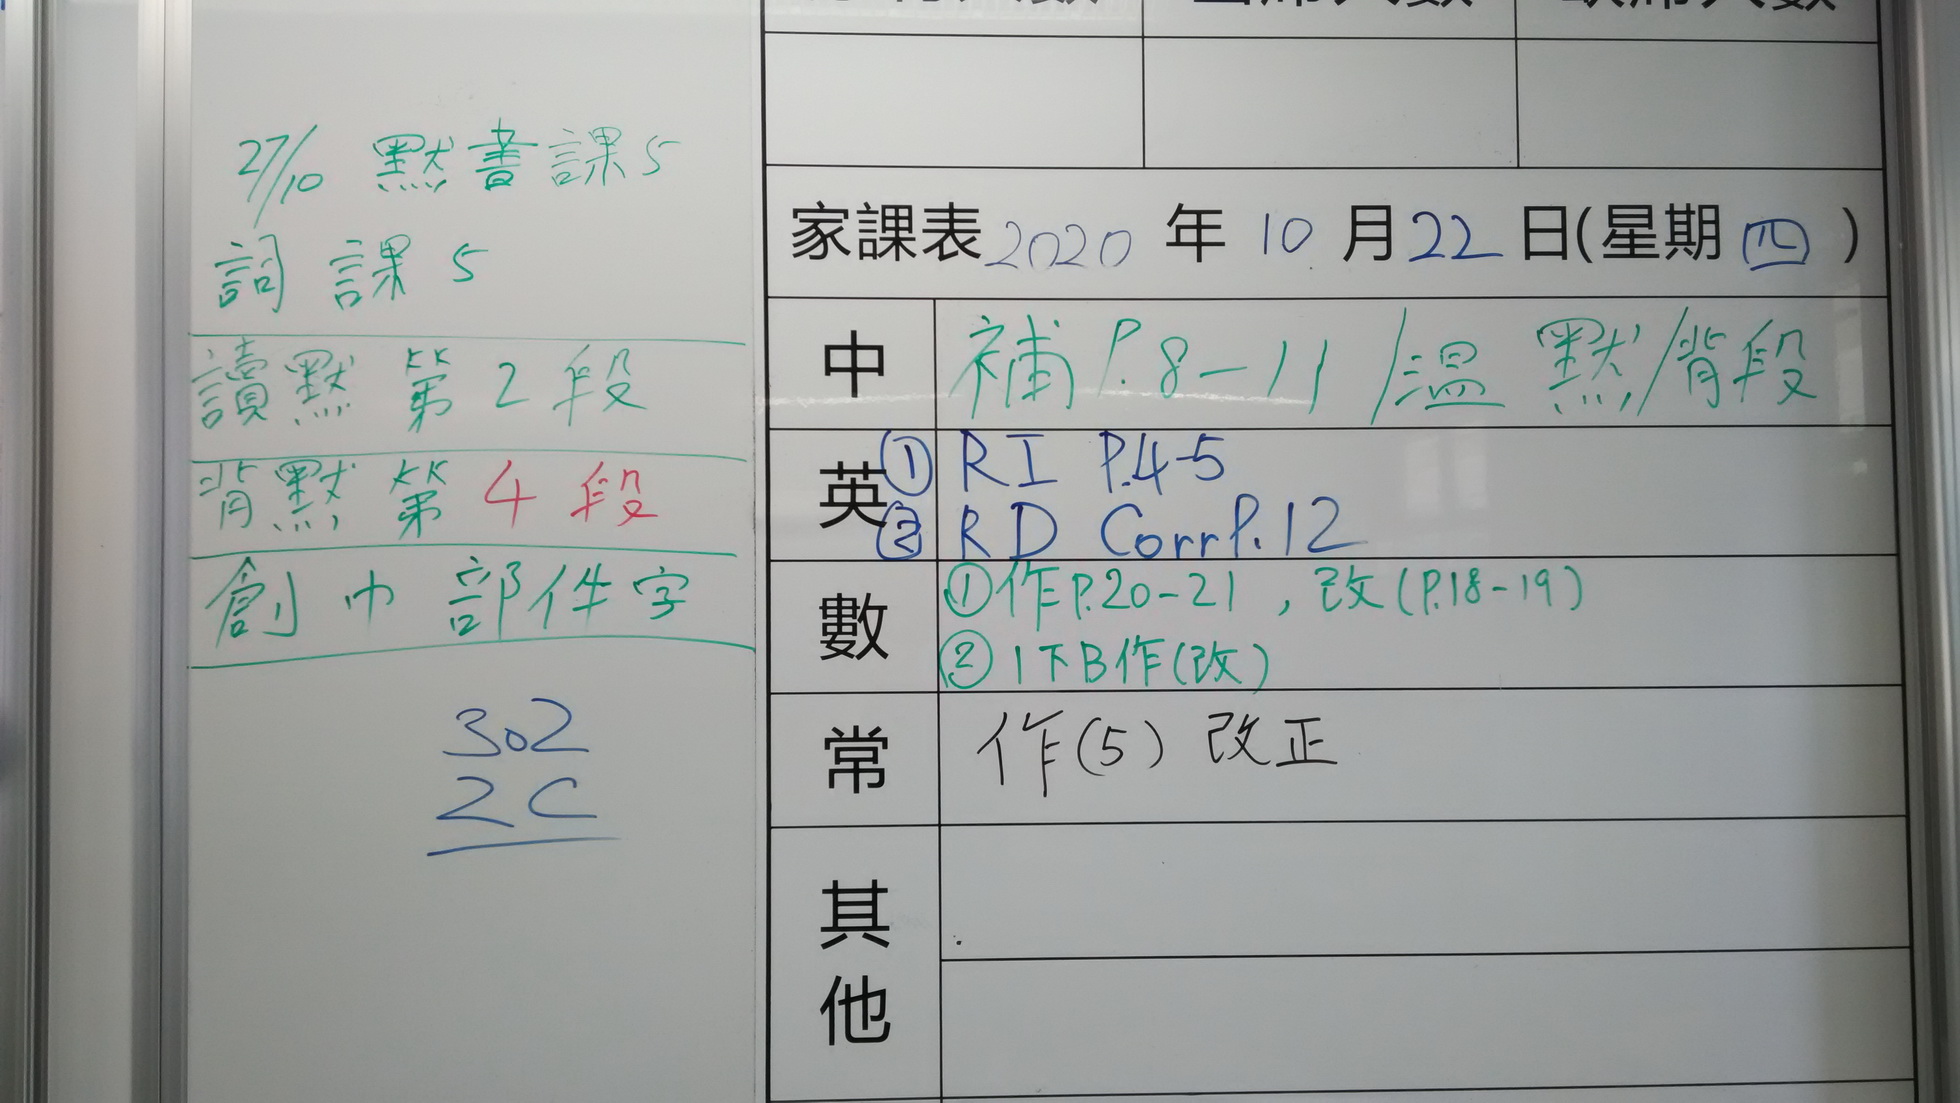 27/10 默書課5
詞 課 5
讀默 第 2 段
背默 第 4 段
創巾部件字
302
2C
家課表 2020 年 10 月 22 日(星期 四 )
中 補 P.8-11 /溫 默/背段
英 ① RI P.4-5
② RD Corr P.12
數 ①作P.20-21 , 改(P.18-19)
② 1下B作(改)
常 作(5) 改正
其他